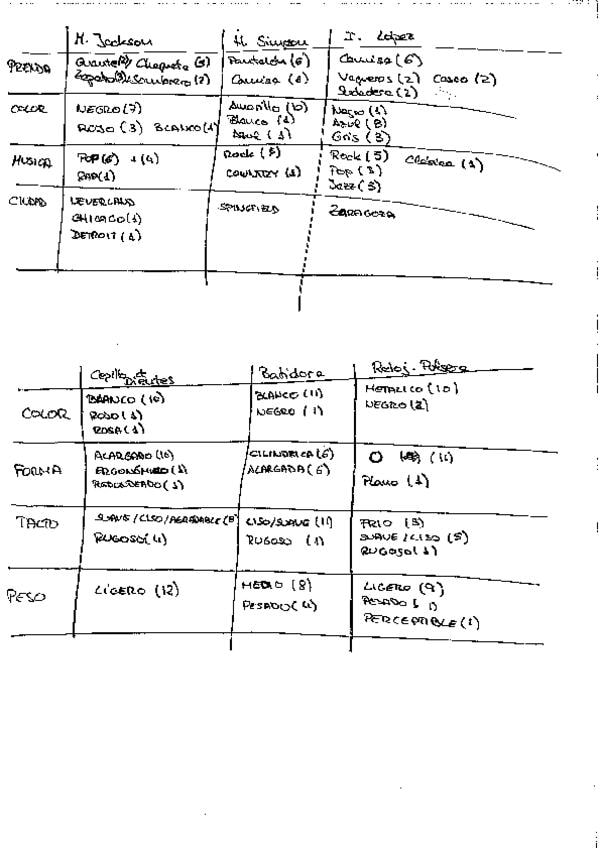 M. Jackson H. Simpson I. López
PRENDA Guante(2) Chaqueta (3) Pantalón (6) Camisa (6)
Zapato(3) Sombrero (2) Camisa (6) Vaqueros (2) Casco (2)
Sudadera (2)
COLOR NEGRO (7) Amarillo (10) Negro (1)
ROJO (3) BLANCO (1) Blanco (1) Azul (8)
Azul (1) Gris (3)
MUSICA POP (6) + (4) Rock (5) Rock (5) Clásica (1)
RAP (1) COUNTRY (1) Pop (3)
Jazz (3)
CIUDAD NEVERLAND SPINGFIELD ZARAGOZA
CHICAGO (1)
DETROIT (1)
Cepillo d Dientes Batidora Reloj-Pulsera
COLOR BLANCO (10) BLANCO (11) METALICO (10)
ROJO (1) NEGRO (1) NEGRO (2)
ROSA (1)
FORMA ALARGADO (10) CILINDRICA (6) O (11)
ERGONÓMICO (1) ALARGADA (6) Plano (1)
REDONDEADO (1)
TACTO SUAVE / LISO / AGRADABLE (8) LISO/SUAVE (11) FRIO (3)
RUGOSO (4) RUGOSO (1) SUAVE / LISO (5)
RUGOSO (1)
PESO LIGERO (12) MEDIO (8) LIGERO (9)
PESADO (4) PESADO
PERCEPTIBLE (1)